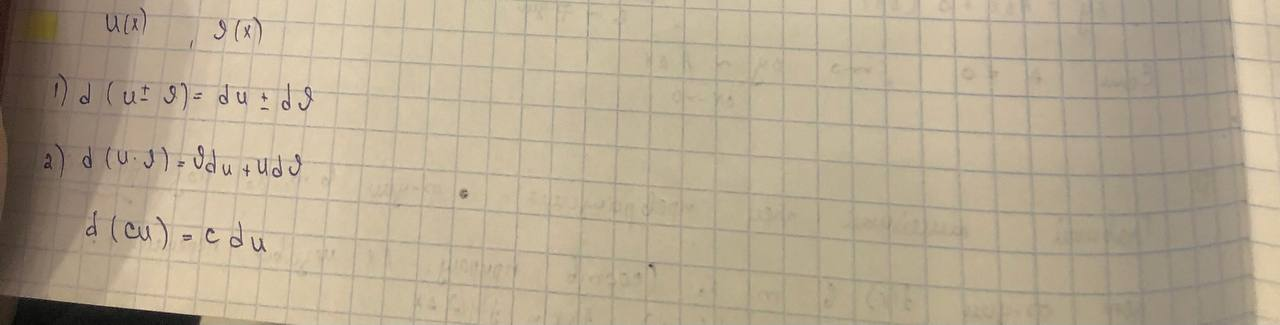 u(x) , ϑ(x)
1) d (u ± ϑ) = du ± dϑ
2) d (u · ϑ) = ϑdu + udϑ
d (cu) = c du